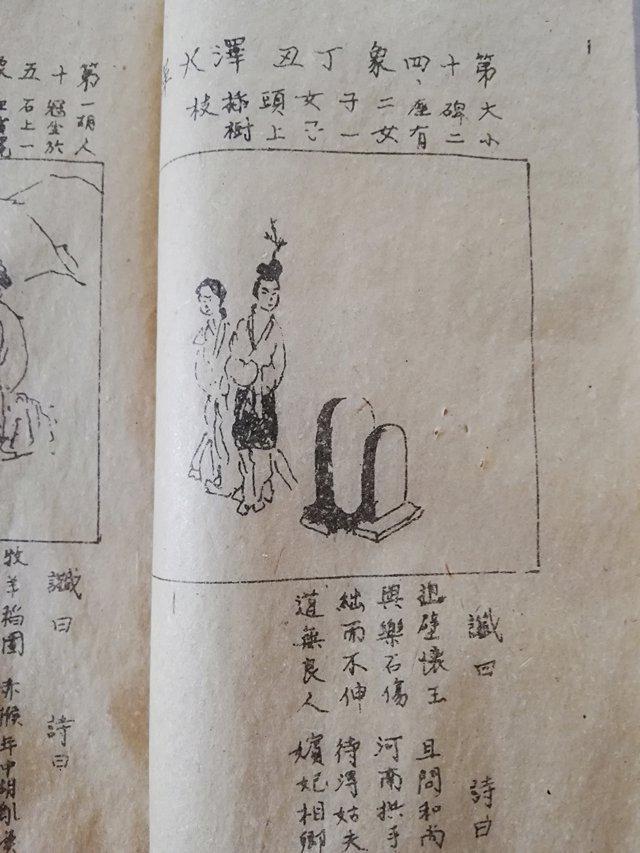 第十四象丁丑澤火革
大小碑二座有二女子一女子頭上插樹枝
讖曰
壁懷玉
與樂石傷
絀而不伸
道無良人
詩曰
且問和尚
河南拱手
待得姑夫
嬪妃相卿
第十五象
一胡人冠坐於石上一
讖曰
牧羊稻園
詩曰
赤猴年中胡亂